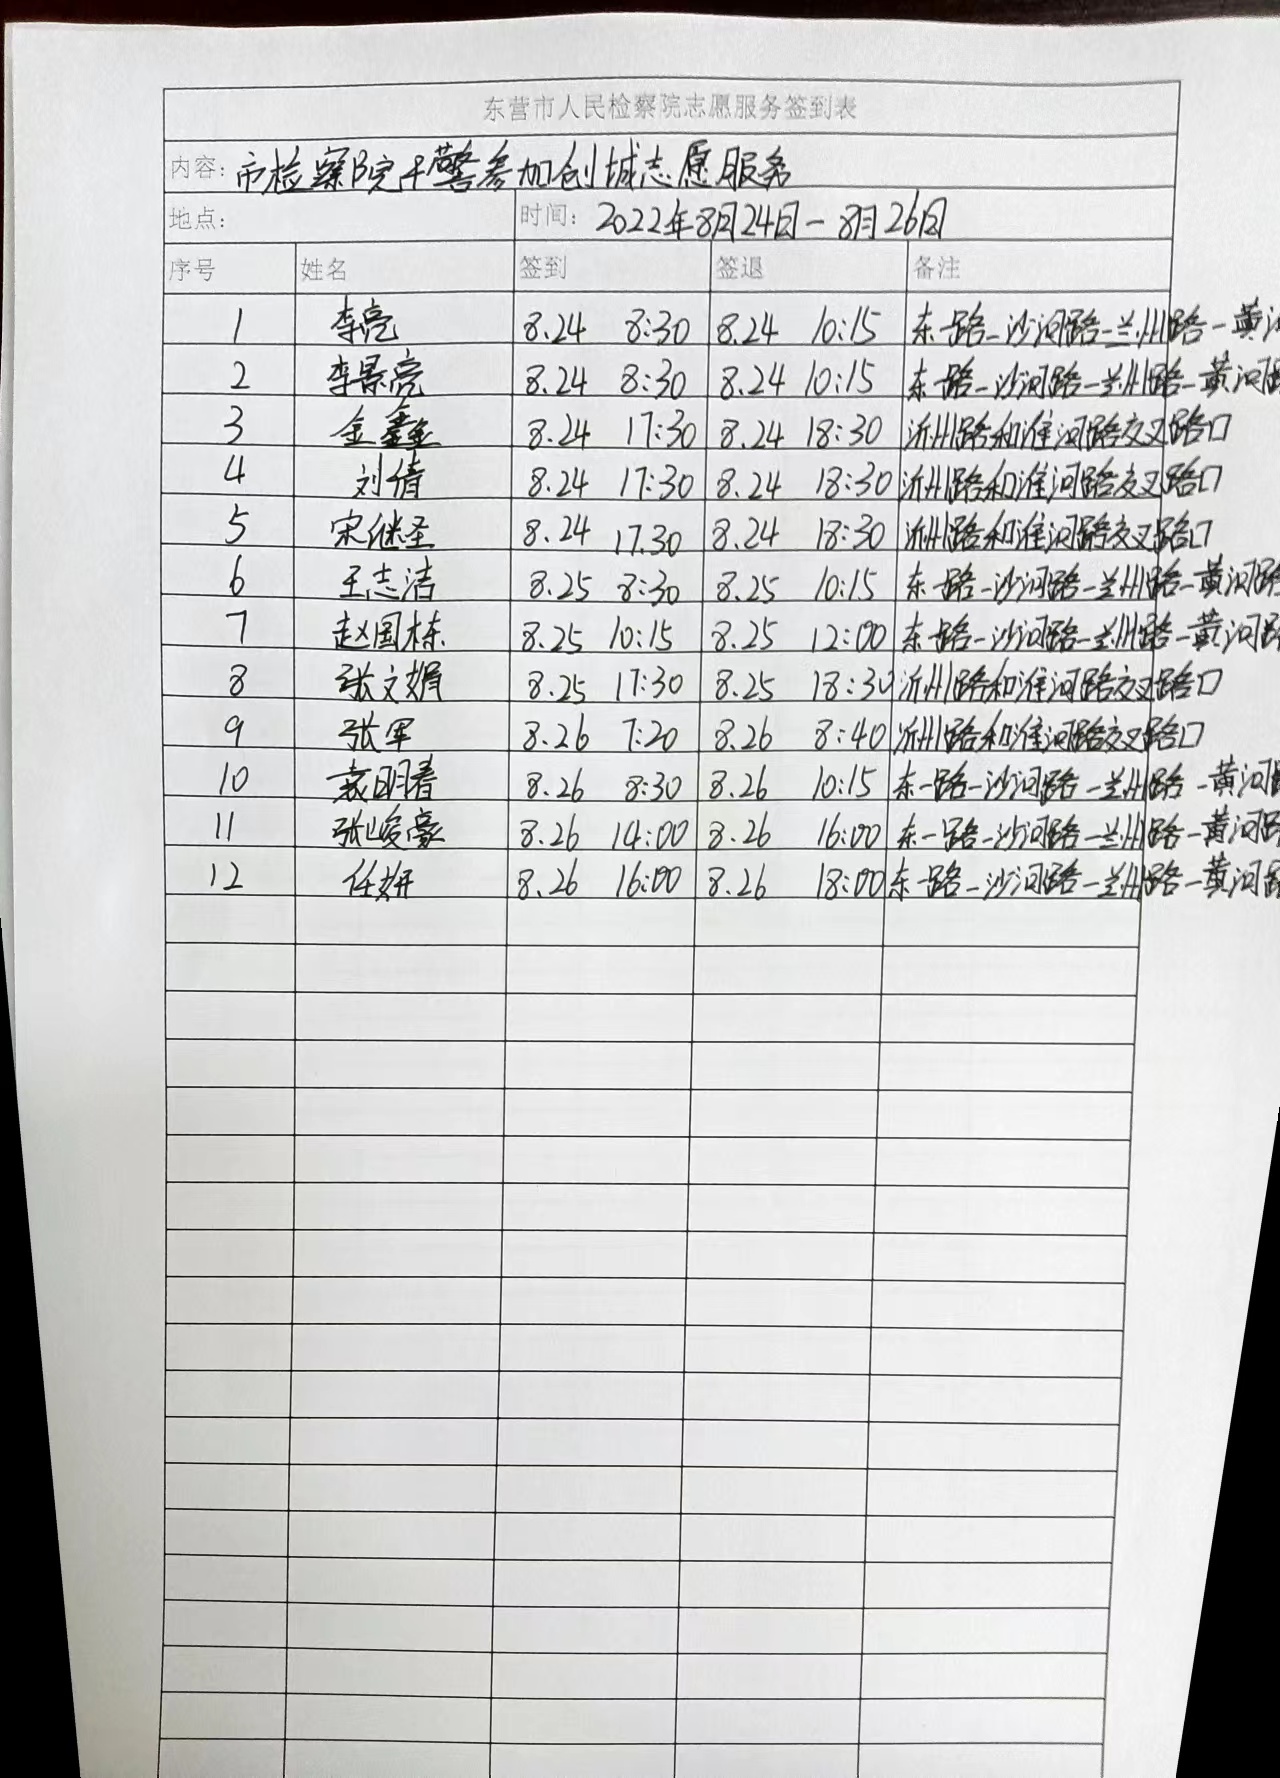 东营市人民检察院志愿服务签到表
内容: 市检察院干警参加创城志愿服务
地点: 时间: 2022年8月24日-8月26日
序号 姓名 签到 签退 备注
1 李亮 8.24 8:30 8.24 10:15 东一路-沙河路-兰州路-黄河
2 李景亮 8.24 8:30 8.24 10:15 东一路-沙河路-兰州路-黄河路
3 金鑫 8.24 17:30 8.24 18:30 沂州路和淮河路交叉路口
4 刘倩 8.24 17:30 8.24 18:30 沂州路和淮河路交叉路口
5 宋继圣 8.24 17.30 8.24 18:30 沂州路和淮河路交叉路口
6 王志洁 8.25 8:30 8.25 10:15 东一路-沙河路-兰州路-黄河路
7 赵国栋 8.25 10:15 8.25 12:00 东一路-沙河路-兰州路-黄河路
8 张文娟 8.25 17:30 8.25 18:30 沂州路和淮河路交叉路口
9 张军 8.26 7:20 8.26 8:40 沂州路和淮河路交叉路口
10 袁明春 8.26 8:30 8.26 10:15 东一路-沙河路-兰州路-黄河路
11 张峻豪 8.26 14:00 8.26 16:00 东一路-沙河路-兰州路-黄河路
12 任妍 8.26 16:00 8.26 18:00 东一路-沙河路-兰州路-黄河路